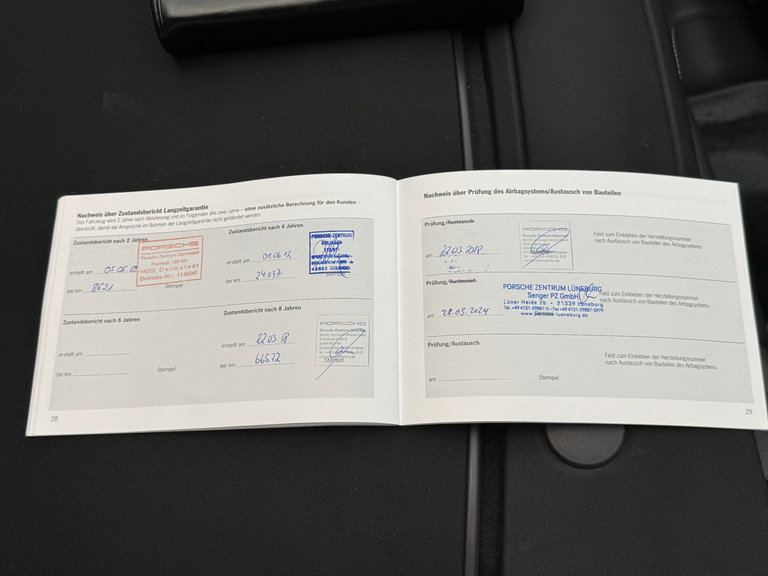 Nachweis über Zustandsbericht Langzeitgarantie
Das Fahrzeug wird 2 Jahre nach Ablieferung und im Folgenden alle zwei Jahre – ohne zusätzliche Berechnung für den Kunden –
überprüft, damit die Ansprüche im Rahmen der Langzeitgarantie nicht gefährdet werden.
Zustandsbericht nach 2 Jahren
erstellt am 05.05.10
bei km 8621
Stempel
PORSCHE
Porsche Zentrum Darmstadt
64202 Darmstadt
Betriebs-Nr.: 1140041
Zustandsbericht nach 4 Jahren
erstellt am 01.06.12
bei km 24037
PORSCHE-ZENTRUM
SOLINGEN
42653 SOLINGEN
Zustandsbericht nach 6 Jahren
erstellt am
bei km
Stempel
Zustandsbericht nach 8 Jahren
erstellt am 22.03.18
bei km 66572
PORSCHE
Stempel
28
Nachweis über Prüfung des Airbagsystems/Austausch von Bauteilen
Prüfung/Austausch
am 22.03.2018
PORSCHE
Feld zum Einkleben der Herstellungsnummer
nach Austausch von Bauteilen des Airbagsystems
Prüfung/Austausch
am 28.03.2024
PORSCHE ZENTRUM LÜNEBURG
Senger PZ GmbH
Lüner Heide 2b • 21339 Lüneburg
Tel. +49 4131-29887-0 • Fax +49 4131-29887-5979
Stempel
Feld zum Einkleben der Herstellungsnummer
nach Austausch von Bauteilen des Airbagsystems
Prüfung/Austausch
am
Stempel
Feld zum Einkleben der Herstellungsnummer
nach Austausch von Bauteilen des Airbagsystems
29